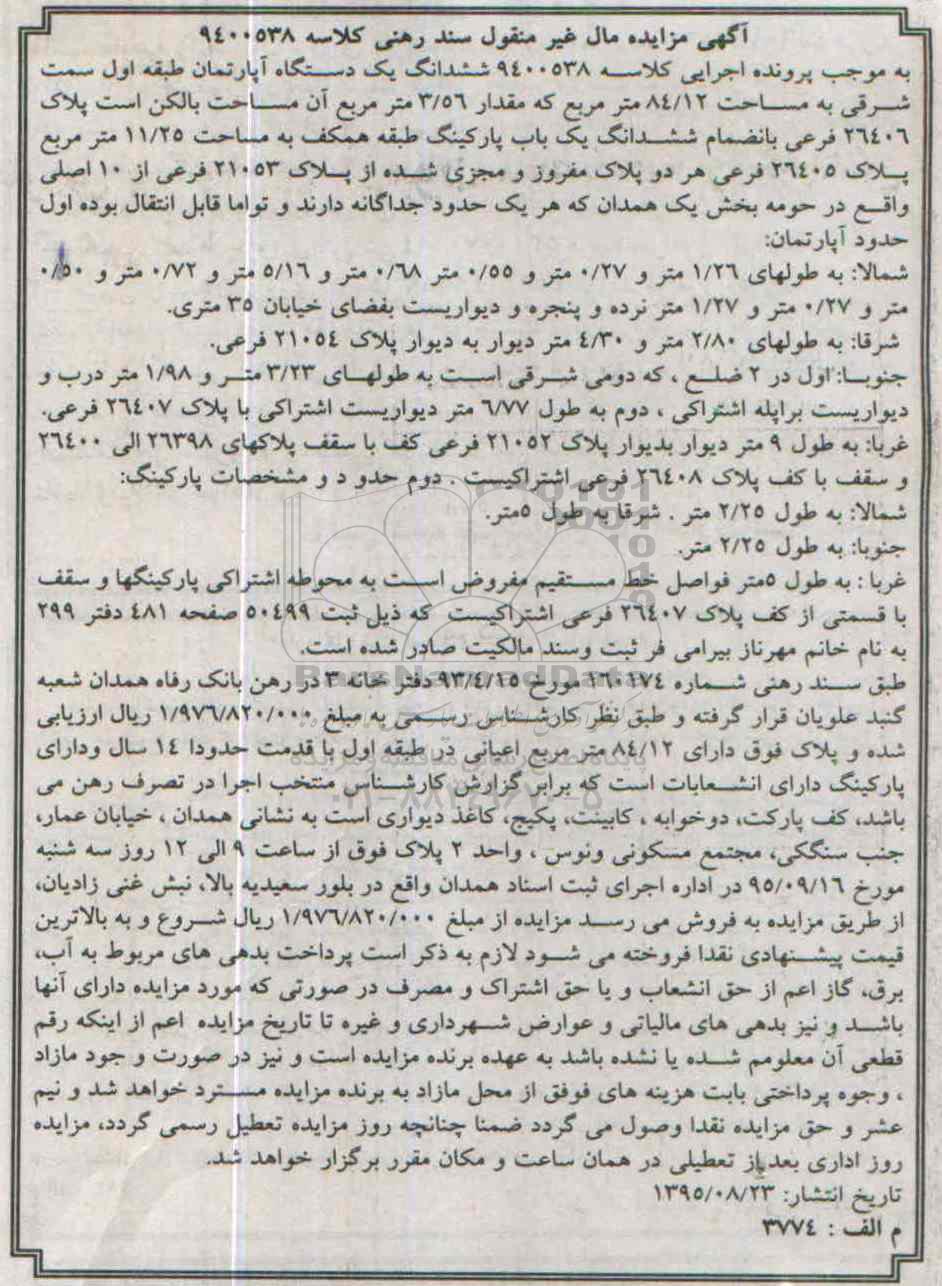 آگهی مزایده مال غیر منقول سند رهنی کلاسه ۹۴۰۰۵۳۸
به موجب پرونده اجرایی کلاسه ۹۴۰۰۵۳۸ ششدانگ یک دستگاه آپارتمان طبقه اول سمت
شرقی به مساحت ۸۴/۱۲ متر مربع که مقدار ۳/۵۶ متر مربع آن مساحت بالکن است پلاک
۲۶۴۰۶ فرعی بانضمام ششدانگ یک باب پارکینگ طبقه همکف به مساحت ۱۱/۲۵ متر مربع
پلاک ۲۶۴۰۵ فرعی هر دو پلاک مفروز و مجزی شده از پلاک ۲۱۰۵۳ فرعی از ۱۰ اصلی
واقع در حومه بخش یک همدان که هر یک حدود جداگانه دارند و تواما قابل انتقال بوده اول
حدود آپارتمان:
شمالا: به طولهای ۱/۲۶ متر و ۰/۲۷ متر و ۰/۵۵ متر ۰/۶۸ متر و ۵/۱۶ متر و ۰/۷۲ متر و ۰/۵۰
متر و ۰/۲۷ متر و ۱/۲۷ متر نرده و پنجره و دیواریست بفضای خیابان ۳۵ متری.
شرقا: به طولهای ۲/۸۰ متر و ۴/۳۰ متر دیوار به دیوار پلاک ۲۱۰۵۴ فرعی.
جنوبا: اول در ۲ ضلع ، که دومی شرقی است به طولهای ۳/۲۳ متر و ۱/۹۸ متر درب و
دیواریست براپله اشتراکی ، دوم به طول ۶/۷۷ متر دیواریست اشتراکی با پلاک ۲۶۴۰۷ فرعی.
غربا: به طول ۹ متر دیوار بدیوار پلاک ۲۱۰۵۲ فرعی کف با سقف پلاکهای ۲۶۳۹۸ الی ۲۶۴۰۰
و سقف با کف پلاک ۲۶۴۰۸ فرعی اشتراکیست . دوم حدو د و مشخصات پارکینگ:
شمالا: به طول ۲/۲۵ متر . شرقا به طول ۵متر.
جنوبا: به طول ۲/۲۵ متر.
غربا : به طول ۵متر فواصل خط مستقیم مفروض است به محوطه اشتراکی پارکینگها و سقف
با قسمتی از کف پلاک ۲۶۴۰۷ فرعی اشتراکیست که ذیل ثبت ۵۰۴۹۹ صفحه ۴۸۱ دفتر ۲۹۹
به نام خانم مهرناز بیرامی فر ثبت وسند مالکیت صادر شده است.
طبق سند رهنی شماره ۱۶۰۱۷۴ مورخ ۹۳/۴/۱۵ دفتر خانه ۳ در رهن بانک رفاه همدان شعبه
گنبد علویان قرار گرفته و طبق نظر کارشناس رسمی به مبلغ ۱/۹۷۶/۸۲۰/۰۰۰ ریال ارزیابی
شده و پلاک فوق دارای ۸۴/۱۲ متر مربع اعیانی در طبقه اول با قدمت حدودا ۱۴ سال ودارای
پارکینگ دارای انشعابات است که برابر گزارش کارشناس منتخب اجرا در تصرف رهن می
باشد، کف پارکت، دوخوابه ، کابینت، پکیج، کاغذ دیواری است به نشانی همدان ، خیابان عمار،
جنب سنگکی، مجتمع مسکونی ونوس ، واحد ۲ پلاک فوق از ساعت ۹ الی ۱۲ روز سه شنبه
مورخ ۹۵/۰۹/۱۶ در اداره اجرای ثبت اسناد همدان واقع در بلور سعیدیه بالا، نبش غنی زادیان،
از طریق مزایده به فروش می رسد مزایده از مبلغ ۱/۹۷۶/۸۲۰/۰۰۰ ریال شروع و به بالاترین
قیمت پیشنهادی نقدا فروخته می شود لازم به ذکر است پرداخت بدهی های مربوط به آب،
برق، گاز اعم از حق انشعاب و یا حق اشتراک و مصرف در صورتی که مورد مزایده دارای آنها
باشد و نیز بدهی های مالیاتی و عوارض شهرداری و غیره تا تاریخ مزایده اعم از اینکه رقم
قطعی آن معلومم شده یا نشده باشد به عهده برنده مزایده است و نیز در صورت و جود مازاد
، وجوه پرداختی بابت هزینه های فوفق از محل مازاد به برنده مزایده مسترد خواهد شد و نیم
عشر و حق مزایده نقدا وصول می گردد ضمنا چنانچه روز مزایده تعطیل رسمی گردد، مزایده
روز اداری بعد از تعطیلی در همان ساعت و مکان مقرر برگزار خواهد شد.
تاریخ انتشار: ۱۳۹۵/۰۸/۲۳
م الف : ۳۷۷۴